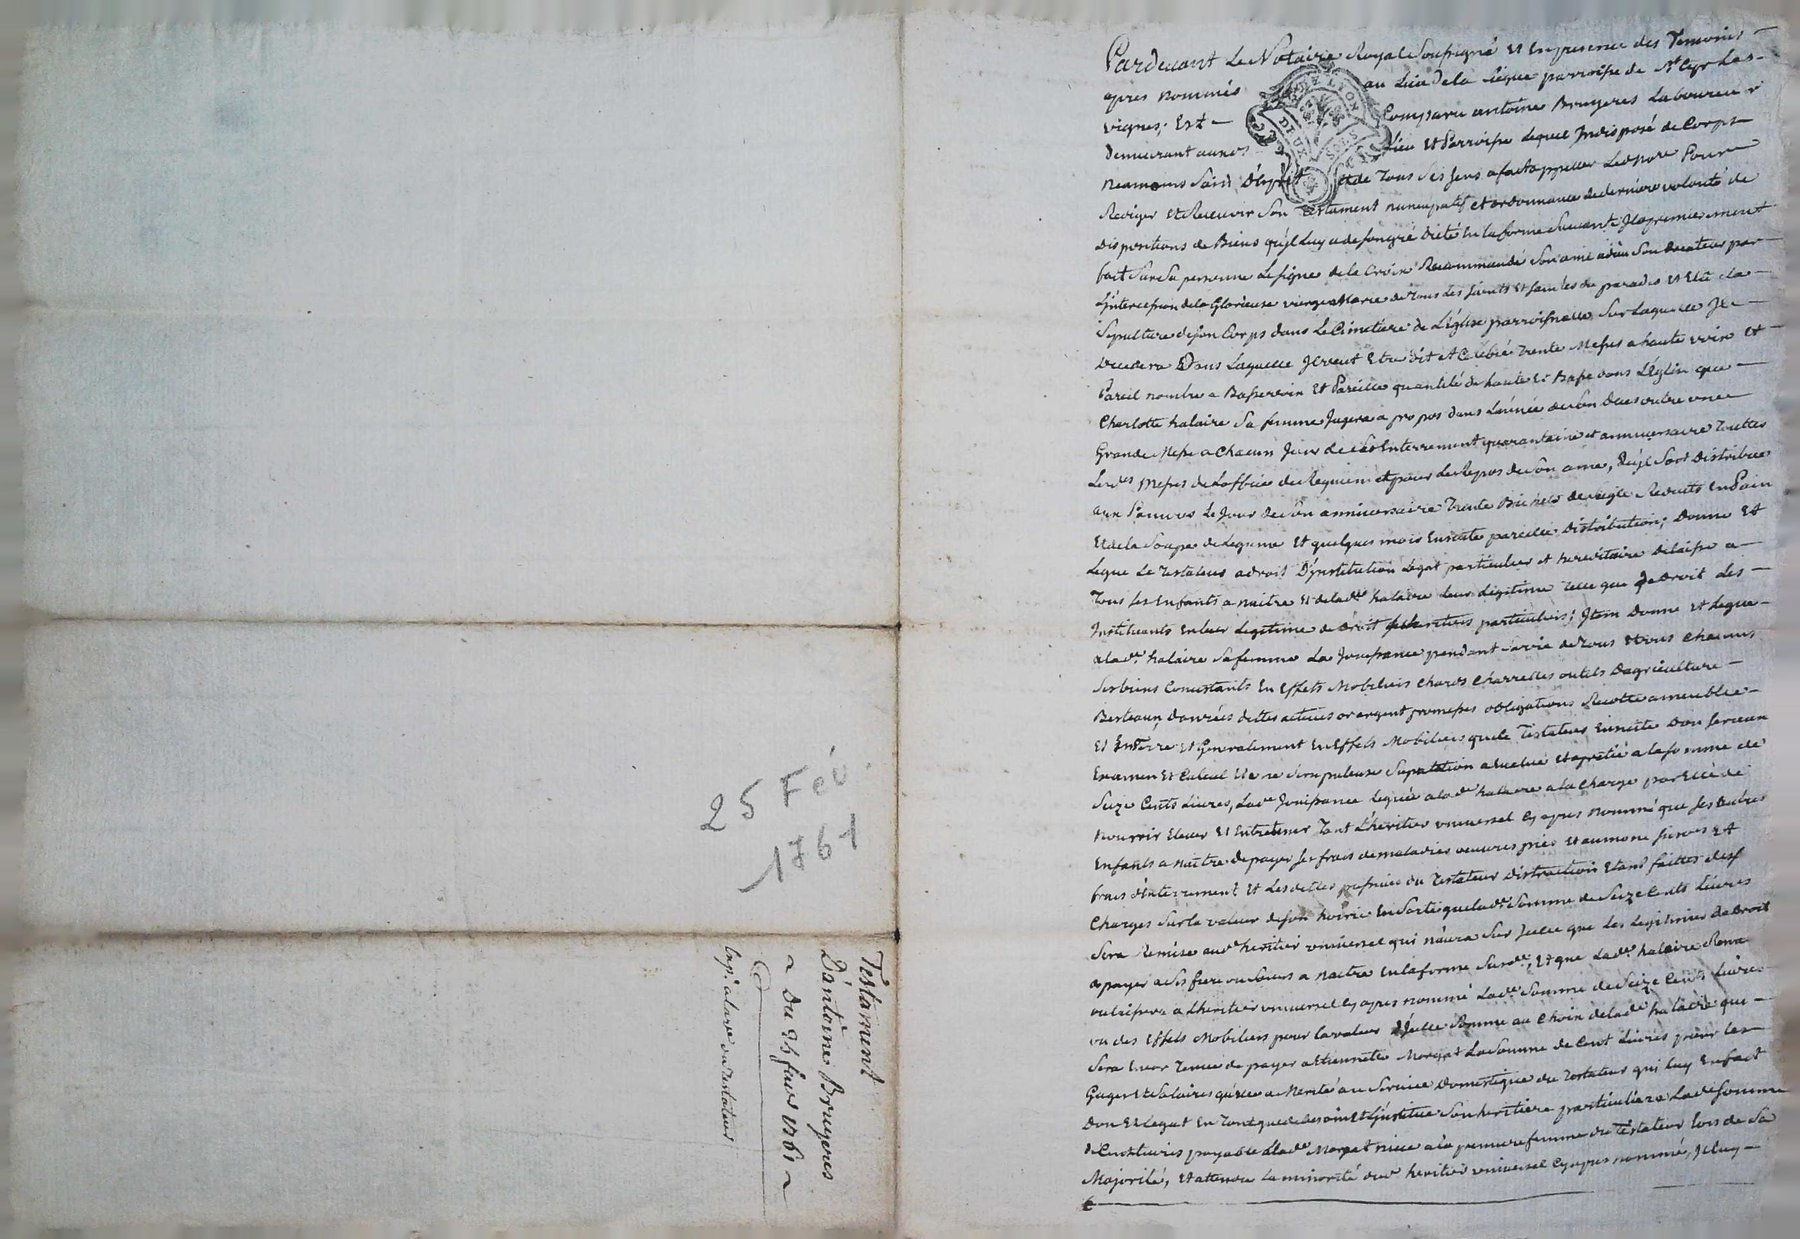 25 Fév.
1761
Testament
D'antoine Bruyeres
Du 25 fuvr 1761
Pardevant Le Notaire Royal Soussigné Et En presence des Temoins
apres nommés au Lieu De la parroisse de St Cyr Les
vignes; Est Comparu antoine Bruyeres Laboureur
demeurant Lieu Et Parroisse Lequel Indisposé de Corps
neamoins Sain D'esprit et de Tous Ses Sens a fait appeller Led Nore Pour
Rediger Et Recevoir Son Testament nuncupatif et ordonnance de derniere volonté de
Dispositions de Biens qu'jl Luy a de son gré dicté En la forme Suivante Jl a premierement
fait Sur Sa personne Le signe de la Croix Recommandé Son ame a dieu Son Createur par
L'intercession de la Glorieuse vierge Marie de Tous Les saints Et saintes du paradis Et Elu La
Sepulture de son Corps dans Le Cimetiere de L'églize parroissialle Sur Laquelle Jl
Decedera Dans Laquelle Jl veut Etre dit et Celebré Trente Messes a haute voix Et
Pareil nombre a Basse voix Et Pareille quantité de haute Et Basse dans L'églize que
Charlotte halaire Sa femme Jugera a propos dans L'année de Son Deces outre une
Grande Messe a Chacun Jour de Ses Enterrement quarantaine et anniversaire Touttes
Lesdes Messes de Loffice de Requiem et pour Le Repos de Son ame, Distribué
aux Pauvres Le Jour de Son anniversaire Trente Bichets de seigle Reduits En Pain
Et de la Soupe de Legume Et quelques mois Ensuite pareille Distribution; Donne Et
Legue Le Testateur a droit D'jnstitution Legat particulier et hereditaire delaisse a
Tous Ses Enfants a naitre Et de lade halaire Leur Legitime Telle que De Droit Les
Instituants En Leur Legitime de droit ses heritiers particuliers; Jtem Donne et Legue
a lade halaire Sa femme La Jouissance pendant Sa vie de Tous Et Uns Chacuns
Ses biens Consistants En Effets Mobiliers Chars Charrettes outils D'agriculture
Bestiaux, Danrées dettes actives or argent promesses obligations Recolte ameublie
Et En Terre Et Generalement En Effets Mobiliers que Le Testateur Ensuite Dun Serieux
Examen Et Calcul Et Scrupuleuse Suputation a Evalué Et apretié a la somme de
Seize Cents Livres, Lade Jouissance Leguée a lade halaire a la Charge par Elle de
nourrir Elever Et Entretenir Tant L'heritier universel Cy apres nommé que Ses autres
Enfants a naitre de payer Les frais de maladies Et aumone Et
frais d'Enterrement Et Les dettes passives du Testateur distraction Etant faittes desd
Charges Sur La valeur de son hoirie En Sorte que lade Somme de Seize Cents Livres
Sera Remise aud heritier universel qui n'aura Sur Jcelle que Les Legitimes de Droit
a payer a Ses frere ou Soeurs a naitre En la forme Susde, Et que Lade halaire Remettra
a L'heritier universel Cy apres nommé Lade Somme de Seize Cents Livres
ou des Effets Mobiliers pour La valeur d'Jcelle Somme au Choix de lade halaire qui
Sera Encor Tenue de payer a Etiennette Morgat La Somme de Cent Livres pour Les
Gages Et Salaires qu'elle a Merité au Service Domestique du Testateur qui Luy En fait
Don Et Legat En Tant que de besoin Et L'jnstitue Son heritiere particuliere Lade Somme
de Cent Livres payable a Lade Morgat niece a la premiere femme du Testateur lors de Sa
Majorité, Et attendu La minorité dud heritier universel Cy apres nommé, Jl luy